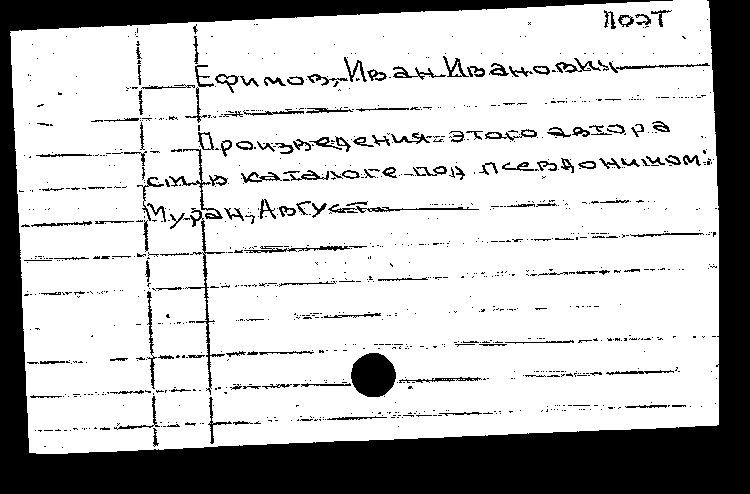 поэт
Ефимов, Иван Иванович
Произведения этого автора
см. в каталоге под псевдонимом:
Муран, Август